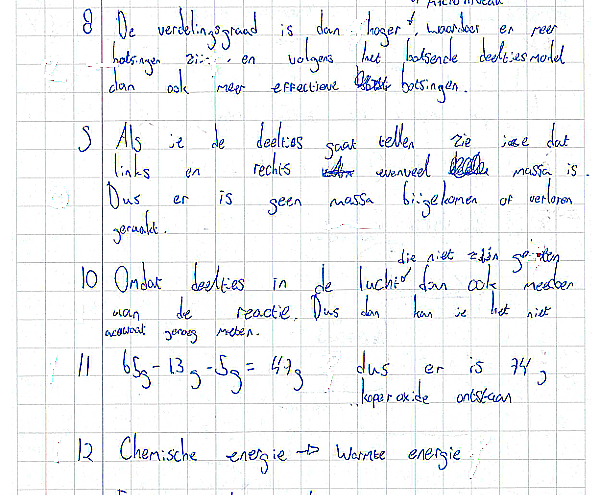 op microniveau
8 De verdelingsgraad is dan hoger, waardoor er meer
botsingen zijn en volgens het botsende deeltjesmodel
dan ook meer effectieve botsingen.
9 Als je de deeltjes gaat tellen zie je dat
links en rechts evenveel massa is.
Dus er is geen massa bijgekomen of verloren
geraakt.
die niet zijn gemeten
10 Omdat deeltjes in de lucht dan ook meedoen
aan de reactie. Dus dan kan je het niet
accuraat genoeg meten.
11 65g - 13g - 5g = 47g dus er is 74g
koperoxide ontstaan
12 Chemische energie → warmte energie